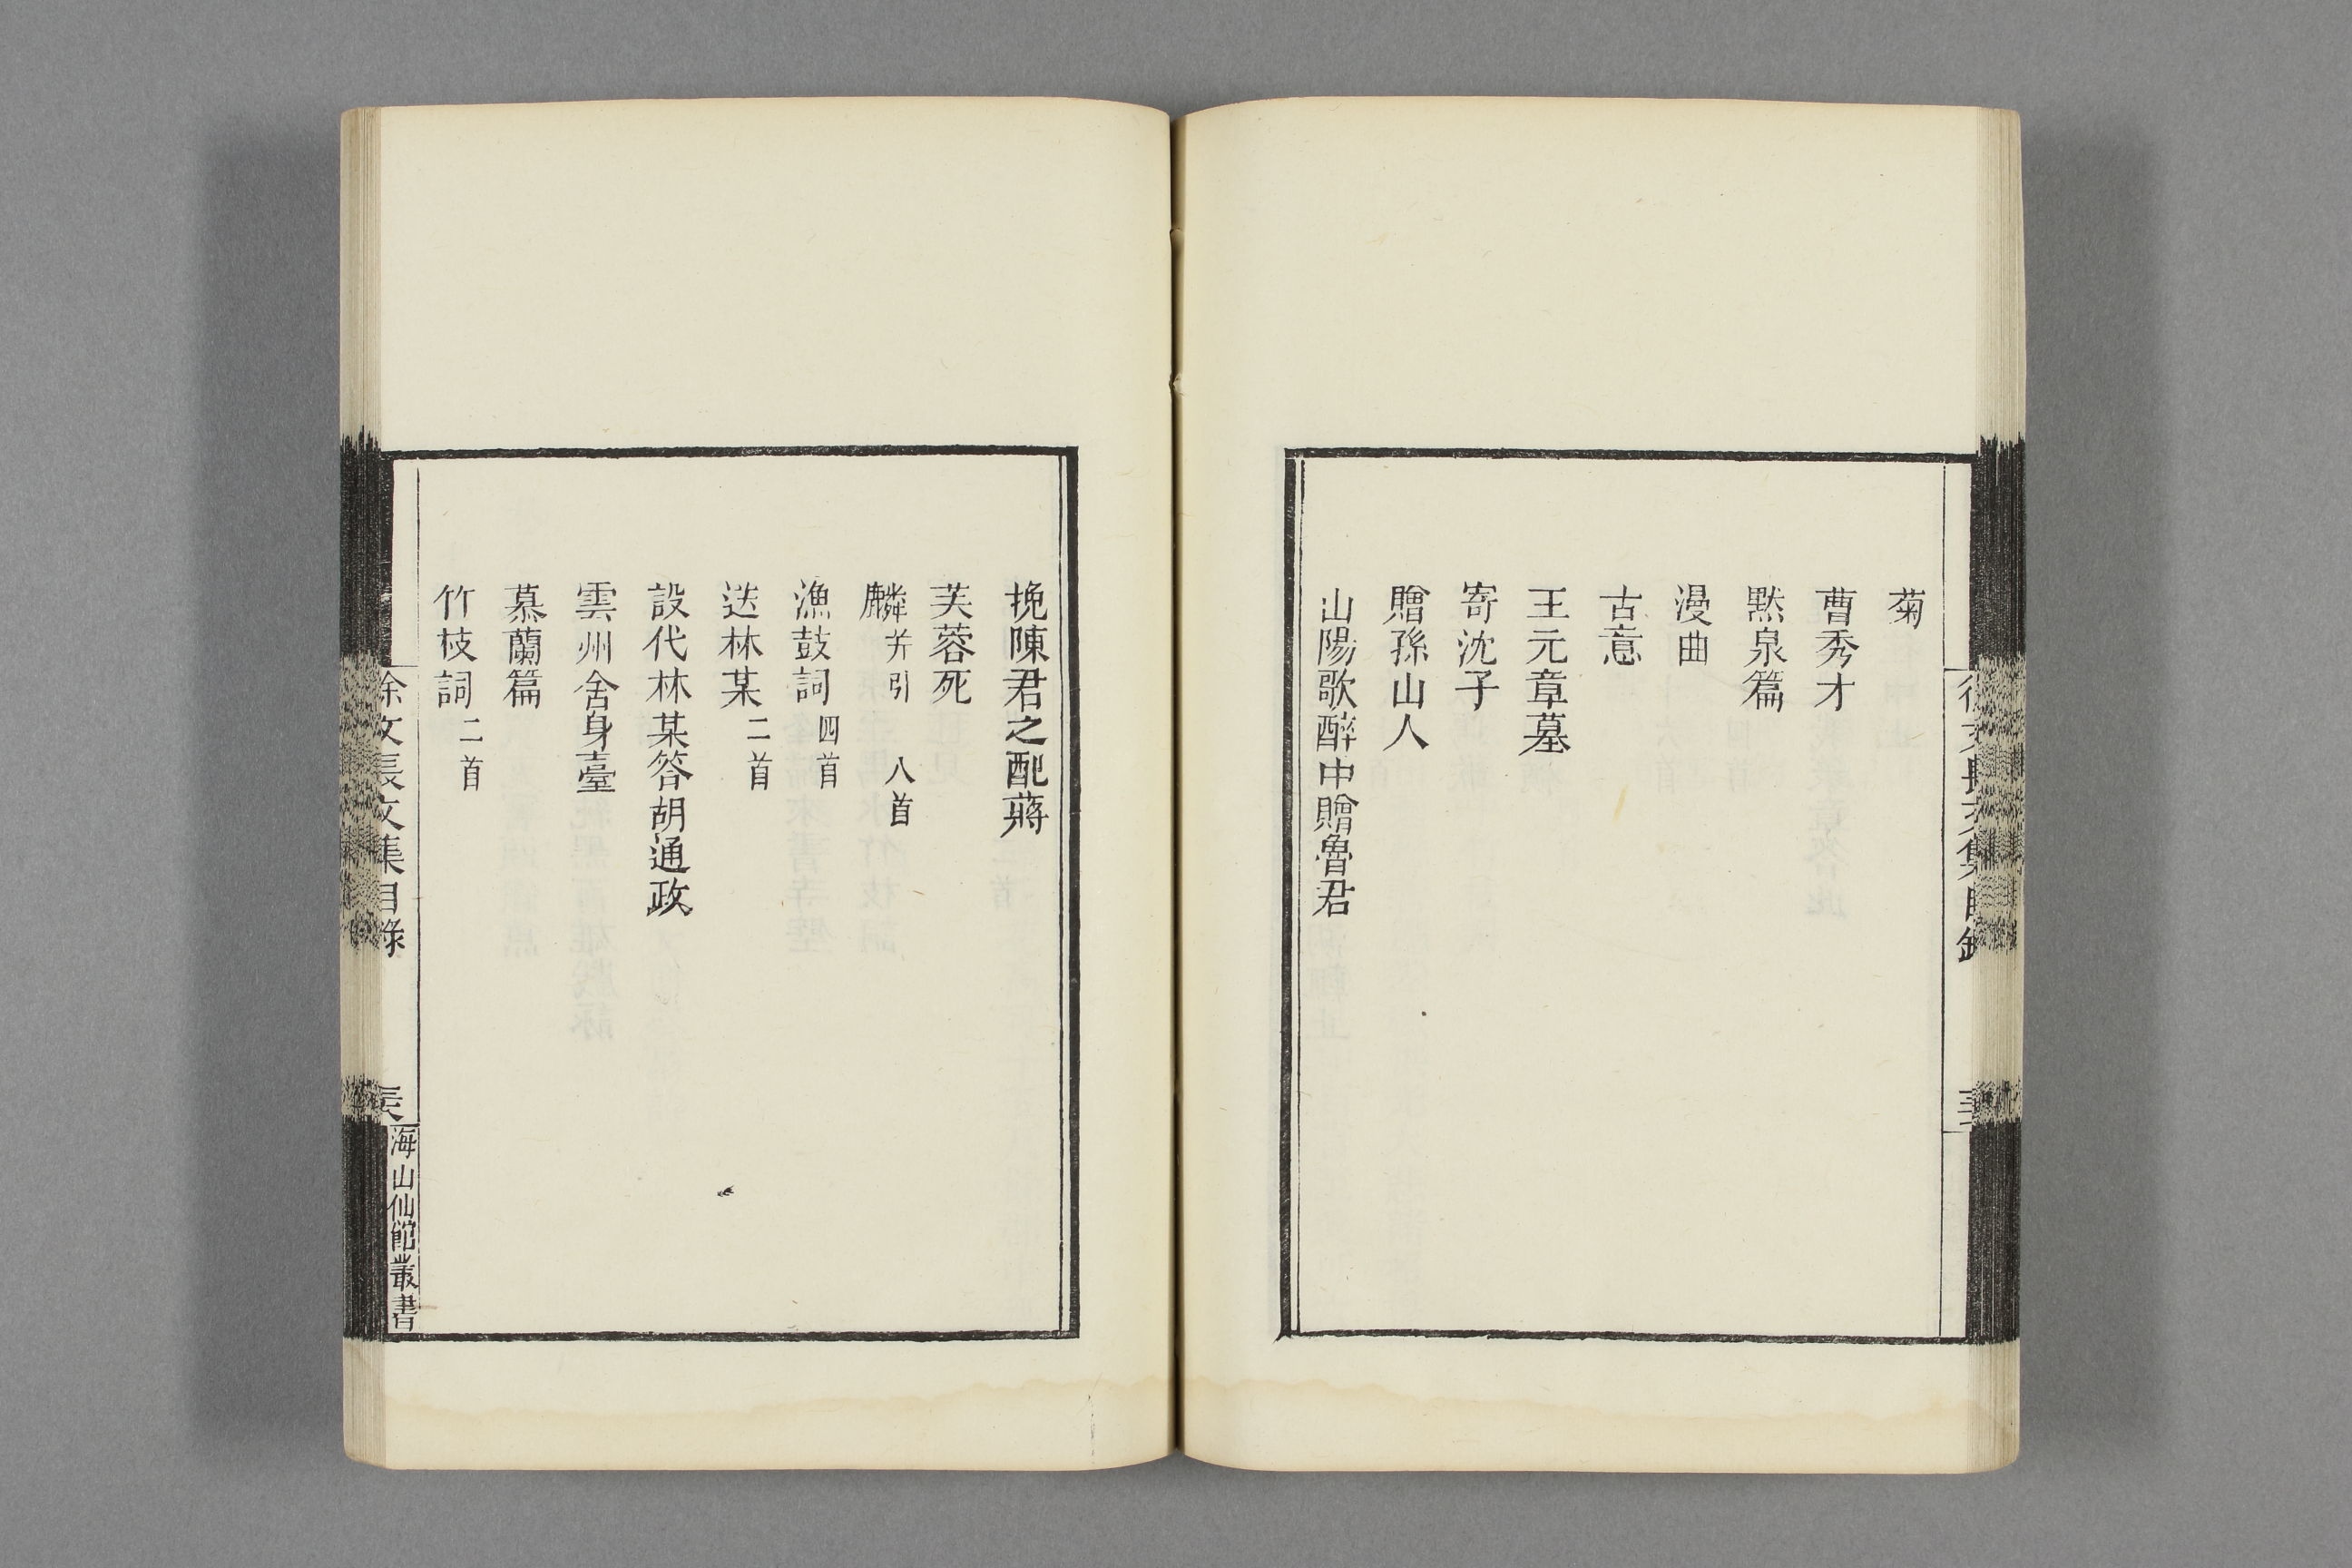 菊
曹秀才
黙泉篇
漫曲
古意
王元章墓
寄沈子
贈孫山人
山陽歌醉中贈魯君
挽陳君之配蔣
芙蓉死
麟并引 八首
漁鼓詞四首
送林某二首
設代林某答胡通政
雲州舍身臺
慕蘭篇
竹枝詞二首
徐文長文集目錄
海山仙館叢書